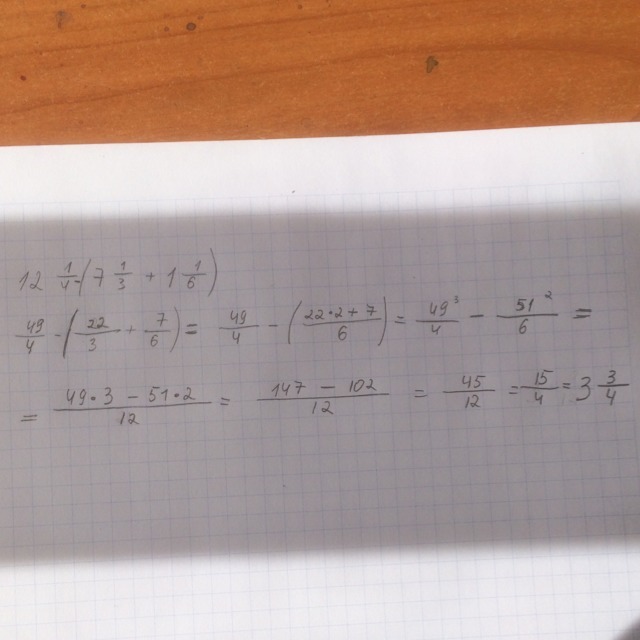 12 1/4 - (7 1/3 + 1 1/6)
49/4 - (22/3 + 7/6) = 49/4 - (22•2+7/6) = 49³/4 - 51²/6 =
= 49•3 - 51•2/12 = 147 - 102/12 = 45/12 = 15/4 = 3 3/4